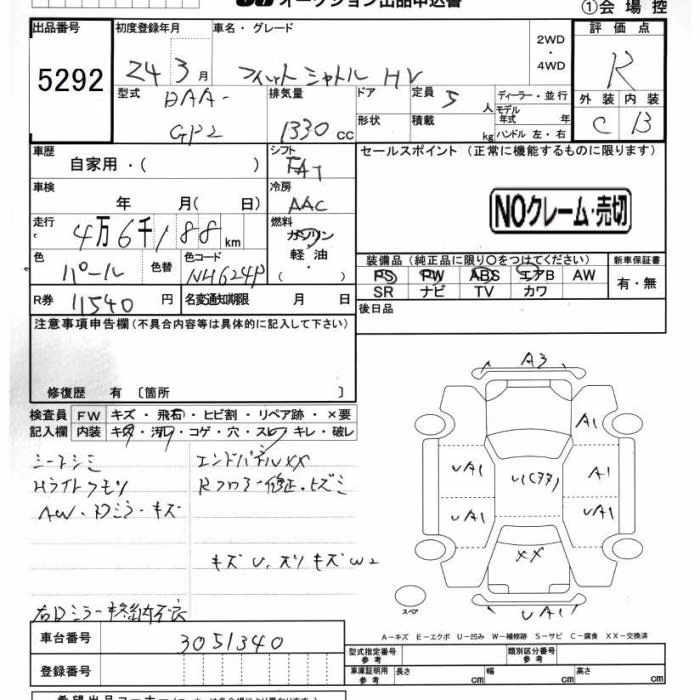 オークション出品申込書
①会場控
出品番号
5292
初度登録年月
24年3月
車名・グレード
フィットシャトル HV
2WD
・
4WD
評価点
R
外装
内装
C
B
型式
DAA-
GP2
排気量
1330cc
ドア
形状
定員
5人
積載
kg
ディーラー・並行
モデル年式 年
ハンドル 左・右
車歴
自家用・( )
シフト
FAT
セールスポイント (正常に機能するものに限ります)
車検
年 月( 日)
冷房
AAC
NOクレーム・売切
走行
4万6千188km
燃料
ガソリン
軽油
・( )
色
パール
色替
色コード
NH624P
装備品(純正品に限り○をつけてください)
新車保証書
PS PW ABS エアB AW
SR ナビ TV カワ
有・無
R券
11540円
名変通知期限 月 日
後日品
注意事項申告欄(不具合内容等は具体的に記入して下さい)
修復歴 有〔箇所 〕
検査員
記入欄
FW キズ・飛石・ヒビ割・リペア跡・×要
内装 キズ・汚レ・コゲ・穴・スレ・キレ・破レ
シートシミ
エンドパネルXX
Hライトクモリ
Rフロアー修正・ヒズミ
AW・Dミラーキズ
キズU、スリキズW2
右Dミラー格納不良
A3
A1
UA1
A1
U(ココ)
UA1
UA1
XX
UA1
スペア
A―キズ E―エクボ U―凹み W―補修跡 S―サビ C―腐食 XX―交換済
車台番号
3051340
登録番号
型式指定番号
参考
類別区分番号
参考
車庫証明用
参考
長さ cm
幅 cm
高さ cm
希望出品コーナー